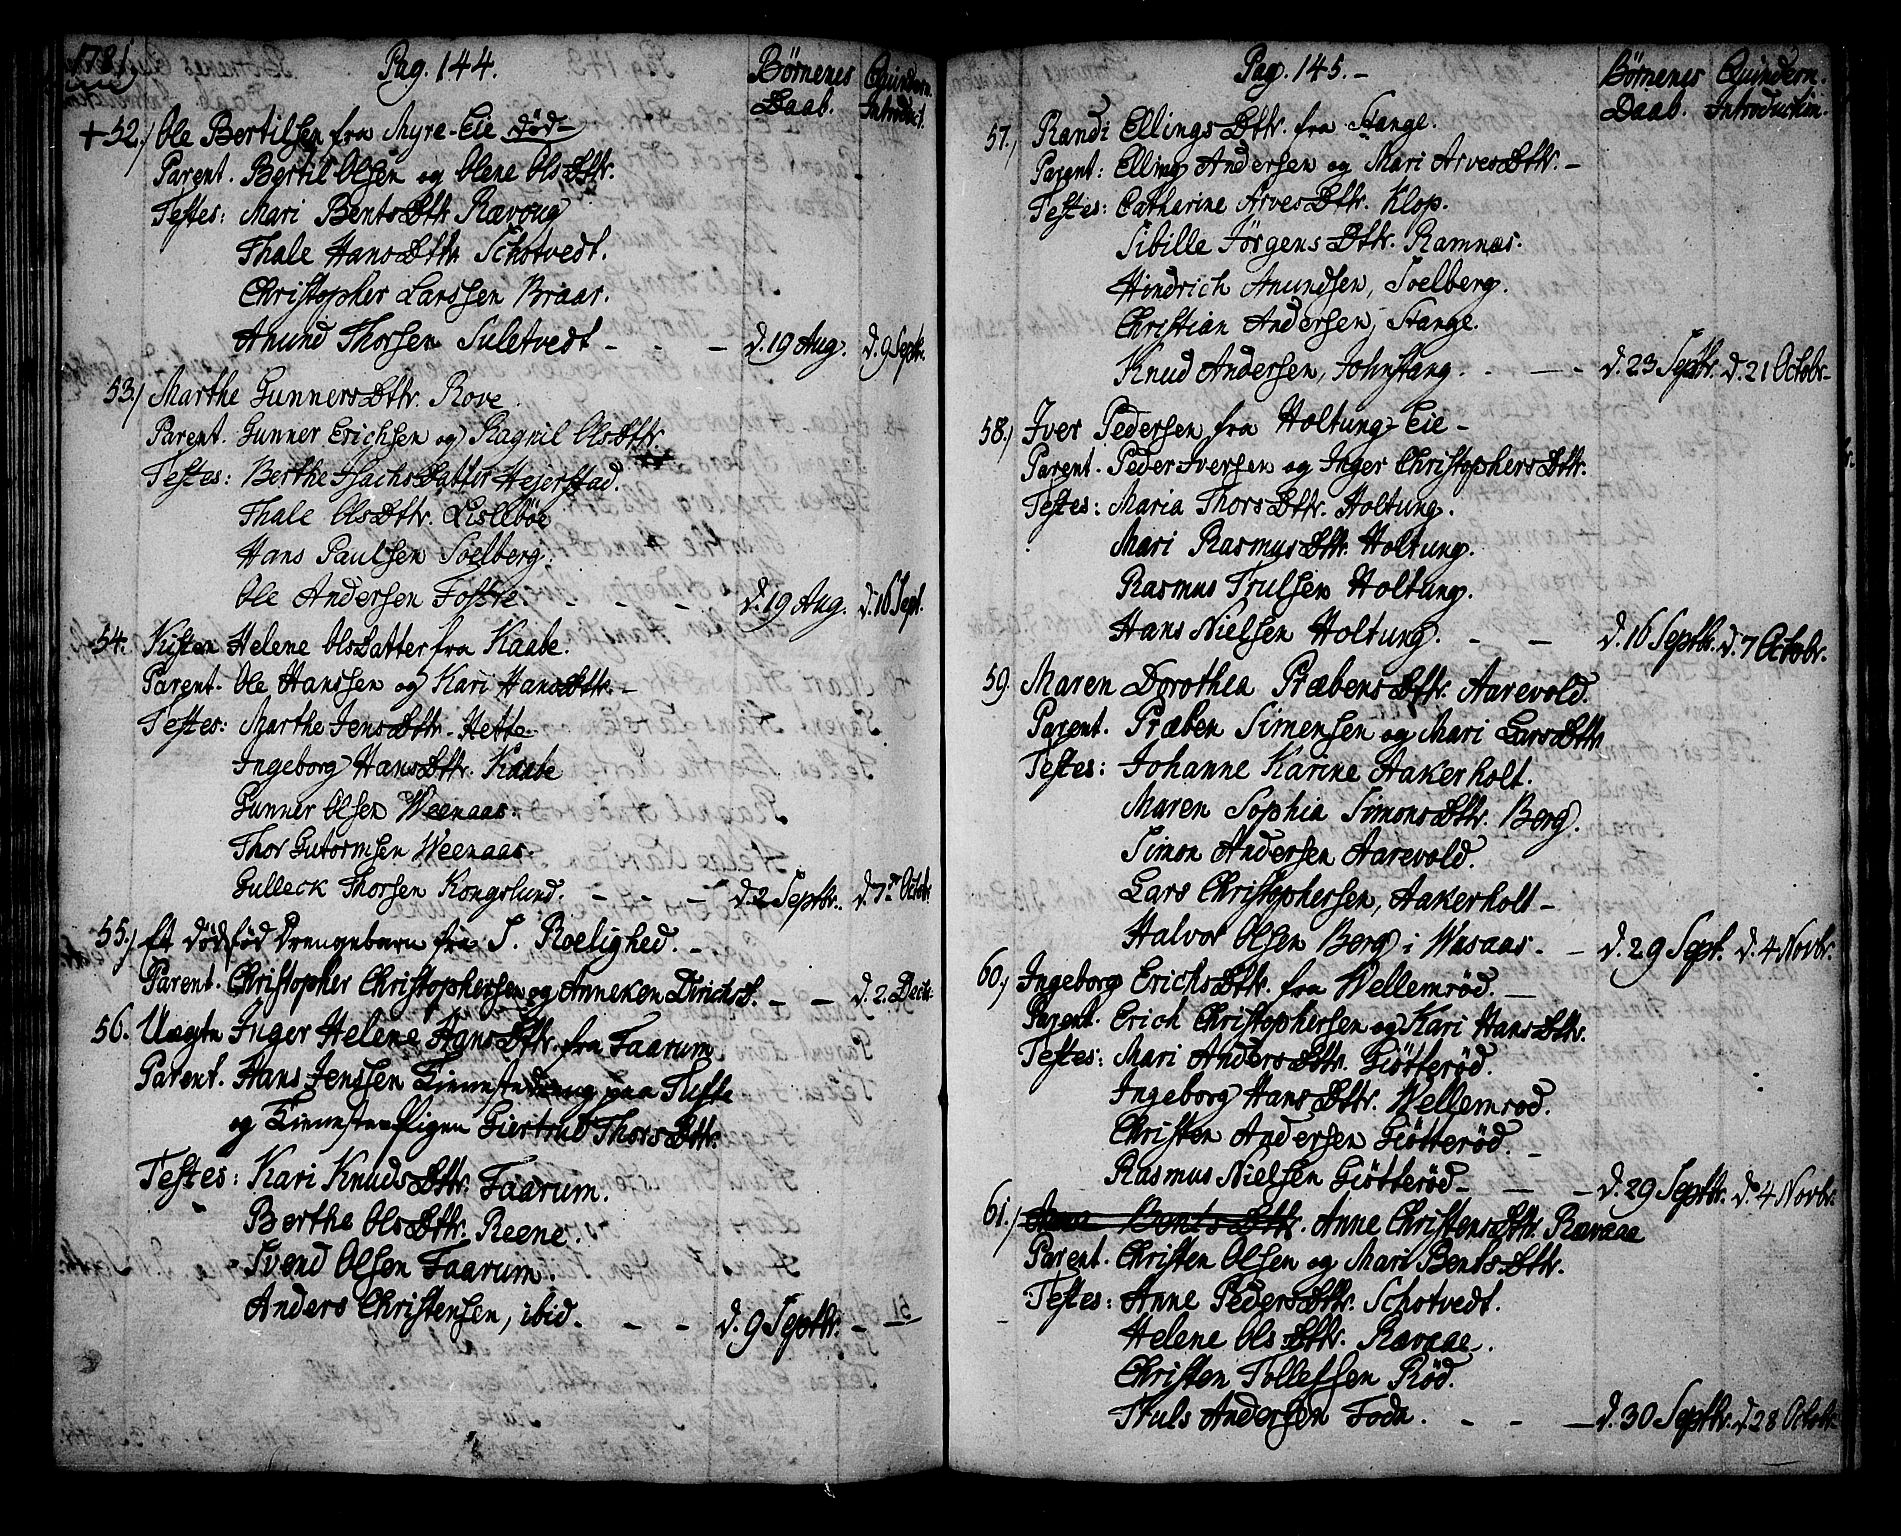 1781
Pag. 144.
Börnenes Daab.
Qvindern. Introduct.
+ 52.) Ole Bertilsen fra Myre-Eie död-
Parent. Bertil Olsen og Olene OlsDttr.
Testes: Mari BentsDttr Rævoug
Thale HansDttr Schotvedt.
Christopher Larssen Braar.
Anund Thorsen Suletvedt - - - d. 19 Aug. d. 9 Septr.
53.) Marthe GunnersDttr. Rove.
Parent. Gunner Erichsen og Ragnil OlsDttr.
Testes: Berthe IsachsDatter Hejerstad.
Thale OlsDttr. Lislebög
Hans Paulsen Soelberg.
Ole Andersen Fossre. - - - d. 19 Aug. d. 16 Sept.
54. Kisten Helene OlsDatter fra Kaabe.
Parent. Ole Hanssen og Kari HansDttr. -
Testes: Marthe JensDttr. Hette
Ingeborg HansDttr. Kaabe
Gunner Olsen Weenaas.
Thor Gutormsen Weenaas.
Gulleck Thorsen Kongslund. - - - d. 2 Septbr. d. 7de Octobr.
55.) Et dödfød Drengebarn fra S. Roelighed. -
Parent. Christopher Christophersen og Anneken DirichsD. - - d. 2. Decbr.
56. Uægte Inger Helene HansDttr. fra Faarum.
Parent. Hans Jenssen Tienestedreng paa Tufte
og Tieneste-Pigen Giertrud ThorsDttr.
Testes: Kari KnudsDttr. Faarum.
Berthe OlsDttr. Reene.
Svend Olsen Faarum.
Anders Christensen, ibid. - - d. 9 Septbr. -
Pag. 145. -
Börnenes Daab.
Qvindern. Introduction.
57.) Randi EllingsDttr. fra Stange.
Parent: Elling Andersen og Mari ArvesDttr. -
Testes: Catharine ArvesDttr. Klop.
Sibille JörgensDttr. Ramnæs.
Hindrich Anundsen, Soelberg.
Christian Andersen, Stange.
Knud Andersen, Johnstang. - - - d. 23 Septbr. d. 21 Octobr.
58.) Iver Pedersen fra Holtung-Eie -
Parent. Peder Iversen og Inger ChristophersDttr.
Testes: Maria ThorsDttr. Holtung.
Mari RasmusDttr. Holtung.
Rasmus Trulsen Holtung.
Hans Nielsen Holtung. - - d. 16 Septbr. d. 7 Octobr.
59. Maren Dorothea PræbensDttr. Aarevold.
Parent. Præben Simensen og Mari LarsDttr
Testes: Johanne Karine Aakerholt.
Maren Sophia SimonsDttr. Berg.
Simon Andersen Aarevold.
Lars Christophersen, Aakerholt -
Halvor Olsen Berg i Wasaas. - d. 29 Sept. d. 4 Novbr.
60.) Ingeborg ErichsDttr. fra Wellemröd. -
Parent. Erich Christophersen og Kari HansDttr.
Testes: Mari AndersDttr. Giötteröd.
Ingeborg HansDttr. Wellemröd.
Christen Andersen Giötteröd. -
Rasmus Nielsen Giötteröd - - - d. 29 Septbr. d. 4 Novbr.
61.) Anne BentsDttr. Anne ChristensDttr. Rævaae
Parent. Christen Olsen og Mari BentsDttr.
Testes: Anne PedersDttr. Schotvedt.
Helene OlsDttr. Rævaae.
Christen Tollefsen Röd.
Truls Andersen Foda. - - - d. 30 Septbr. d. 28 Octobr.